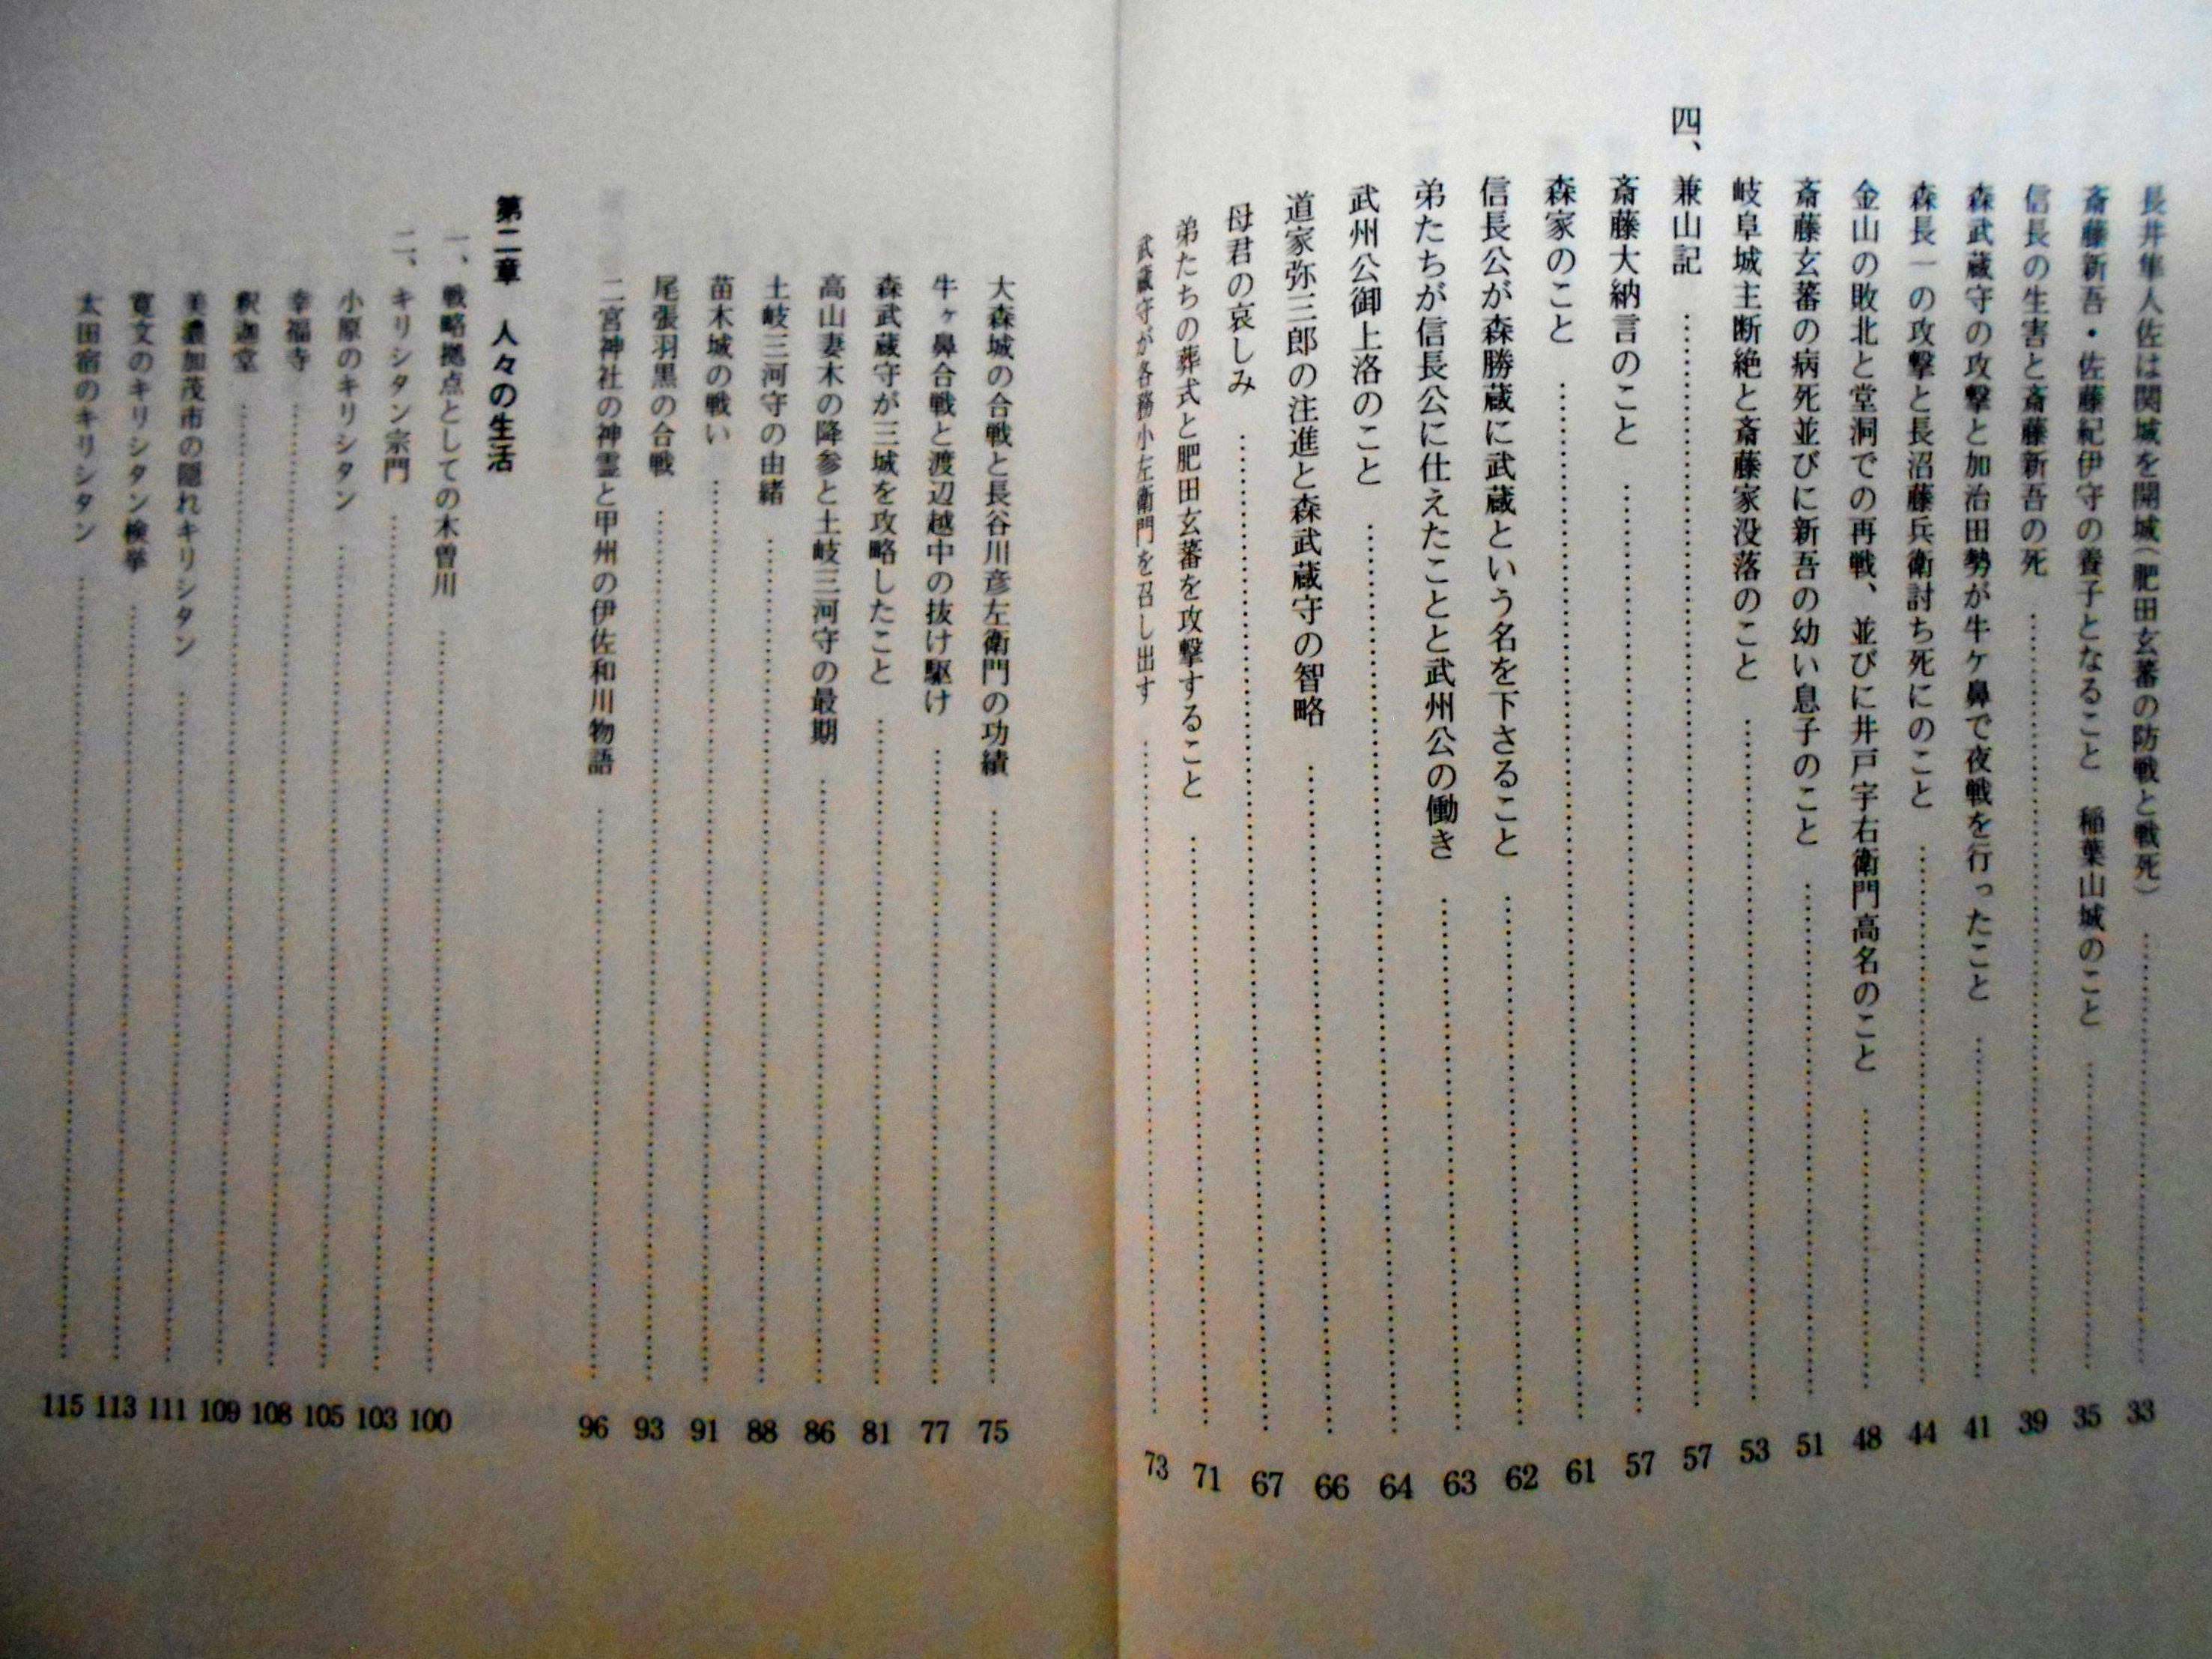 長井隼人佐は関城を開城（肥田玄蕃の防戦と戦死） …… 33
斎藤新吾・佐藤紀伊守の養子となること　稲葉山城のこと …… 35
信長の生害と斎藤新吾の死 …… 39
森武蔵守の攻撃と加治田勢が牛ケ鼻で夜戦を行ったこと …… 41
森長一の攻撃と長沼藤兵衛討ち死にのこと …… 44
金山の敗北と堂洞での再戦、並びに井戸宇右衛門高名のこと …… 48
斎藤玄蕃の病死並びに新吾の幼い息子のこと …… 51
岐阜城主断絶と斎藤家没落のこと …… 53
四、兼山記 …… 57
斎藤大納言のこと …… 57
森家のこと …… 61
信長公が森勝蔵に武蔵という名を下さること …… 62
弟たちが信長公に仕えたことと武州公の働き …… 63
武州公御上洛のこと …… 64
道家弥三郎の注進と森武蔵守の智略 …… 66
母君の哀しみ …… 67
弟たちの葬式と肥田玄蕃を攻撃すること …… 71
武蔵守が各務小左衛門を召し出す …… 73
大森城の合戦と長谷川彦左衛門の功績 …… 75
牛ヶ鼻合戦と渡辺越中の抜け駆け …… 77
森武蔵守が三城を攻略したこと …… 81
高山妻木の降参と土岐三河守の最期 …… 86
土岐三河守の由緒 …… 88
苗木城の戦い …… 91
尾張羽黒の合戦 …… 93
二宮神社の神霊と甲州の伊佐和川物語 …… 96
第二章　人々の生活
一、戦略拠点としての木曽川 …… 100
二、キリシタン宗門 …… 103
小原のキリシタン …… 105
幸福寺 …… 108
釈迦堂 …… 109
美濃加茂市の隠れキリシタン …… 111
寛文のキリシタン検挙 …… 113
太田宿のキリシタン …… 115